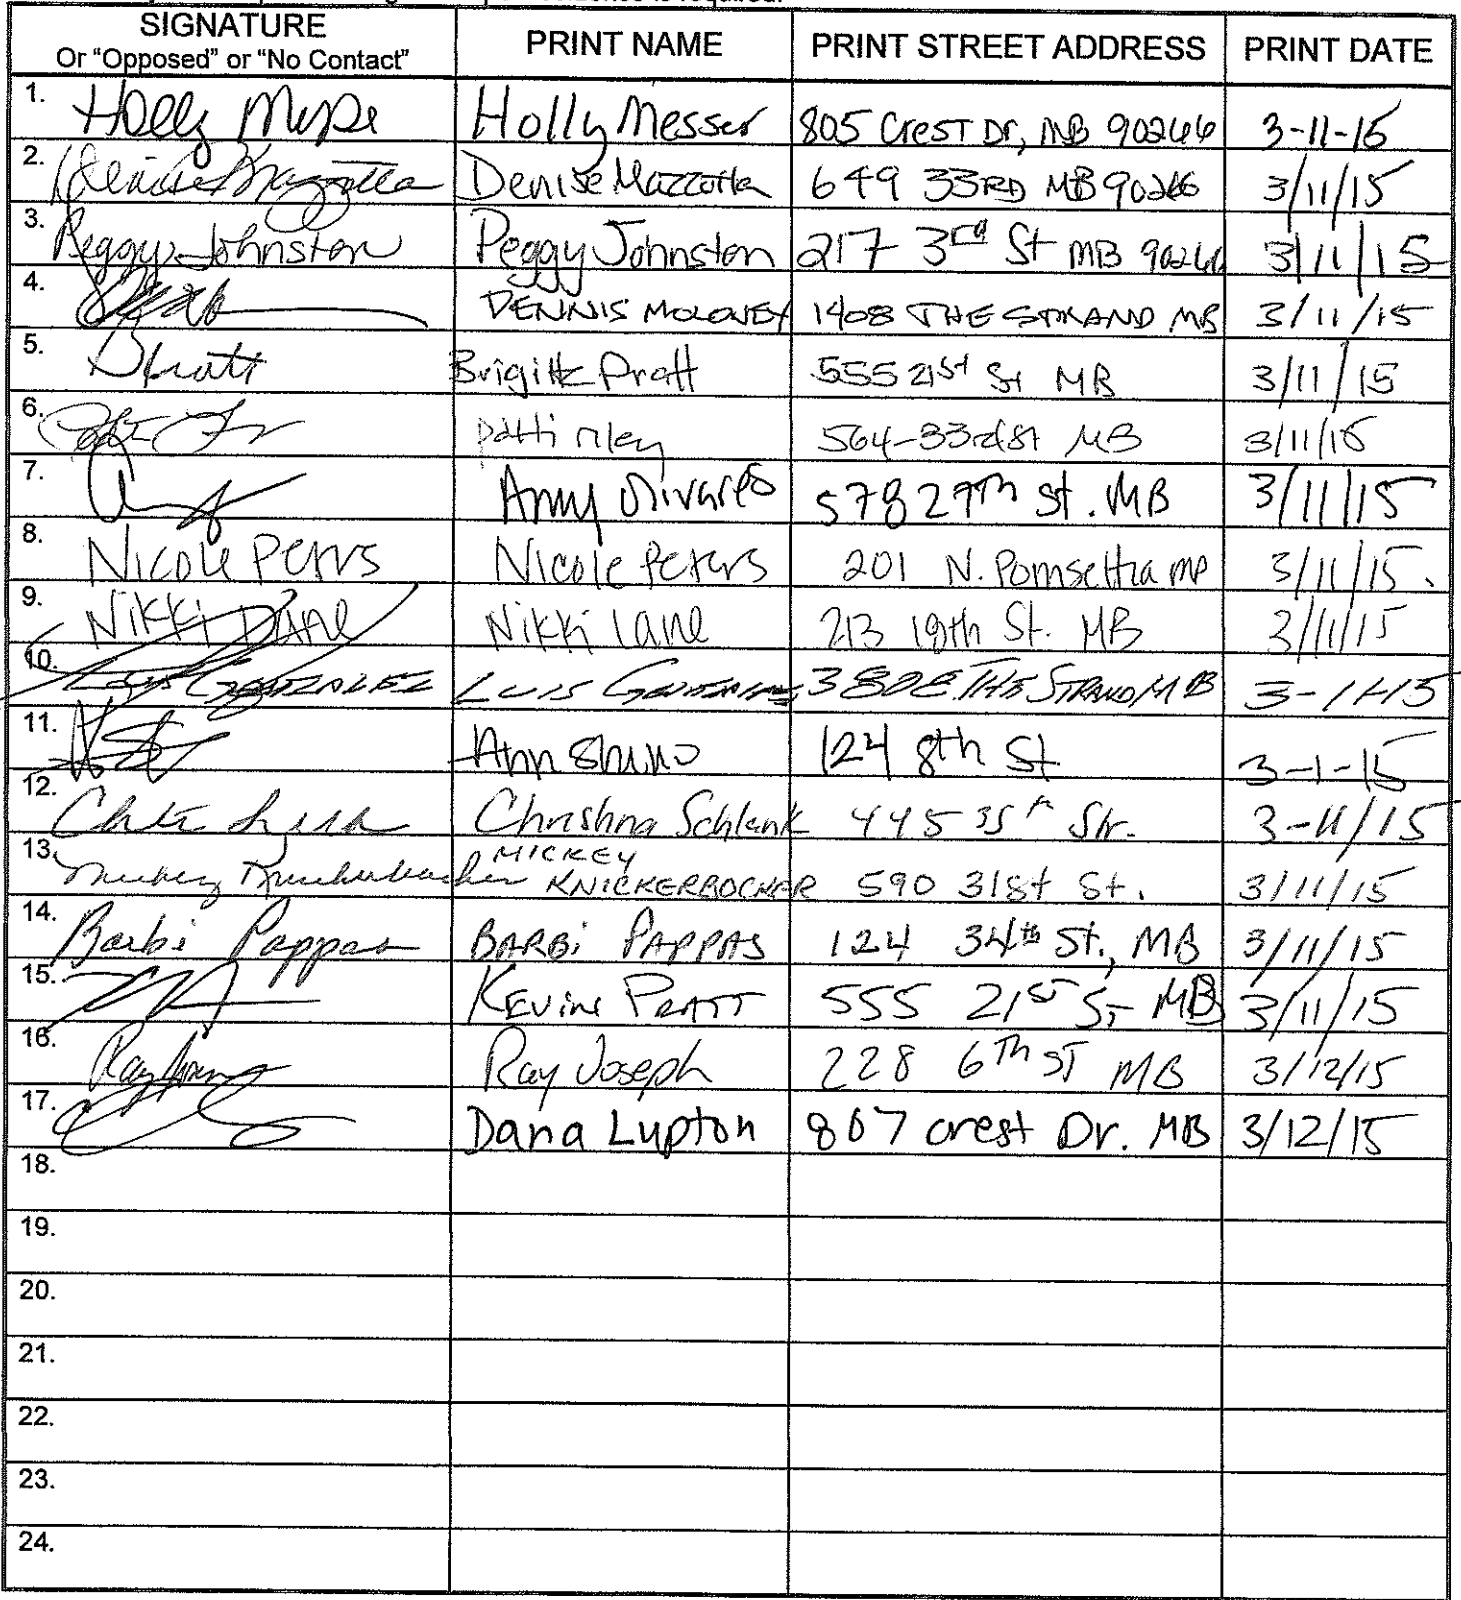 is required.
SIGNATURE PRINT NAME PRINT STREET ADDRESS PRINT DATE
Or "Opposed" or "No Contact"
1. Holly Messer 805 Crest Dr, MB 90266 3-11-15
2. Denise Mazzotta Denise Mazzotta 649 33RD MB 90266 3/11/15
3. Peggy Johnston Peggy Johnston 217 3rd St MB 90266 3/11/15
4. DENNIS MOLONEY 1408 THE STRAND MB 3/11/15
5. Pratt Brigitte Pratt 555 21st St MB 3/11/15
6. patti riley 564-33rd st MB 3/11/15
7. Amy Olivares 578 27th St. MB 3/11/15
8. Nicole Peters Nicole Peters 201 N. Poinsettia MB 3/11/15.
9. Nikki Lane Nikki Lane 213 19th St. MB 3/11/15
10. Luis GONZALEZ LUIS 3802 THE STRAND, MB 3-11-15
11. Ann 124 8th St 3-1-15
12. Christina Schlenk 445 35th Str. 3-11/15
13. Mickey Knickerbocker MICKEY
KNICKERBOCKER 590 31st St. 3/11/15
14. Barbi Pappas BARBi PAPPAS 124 34th St., MB 3/11/15
15. KEVIN PRATT 555 21ST ST MB 3/11/15
16. Ray Joseph 228 6Th ST MB 3/12/15
17. Dana Lupton 807 crest Dr. MB 3/12/15
18.
19.
20.
21.
22.
23.
24.